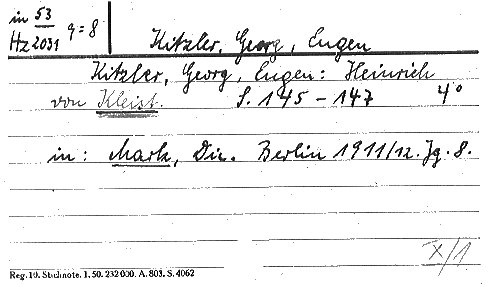 in 53
Hz 2031 q=8
Kitzler, Georg, Eugen
Kitzler, Georg, Eugen: Heinrich
von Kleist. S. 145-147 4°
in: Mark, Die. Berlin 1911/12. Jg. 8.
X/1
Reg. 10. Stichnote. 1. 50. 232000. A. 803. S. 4062